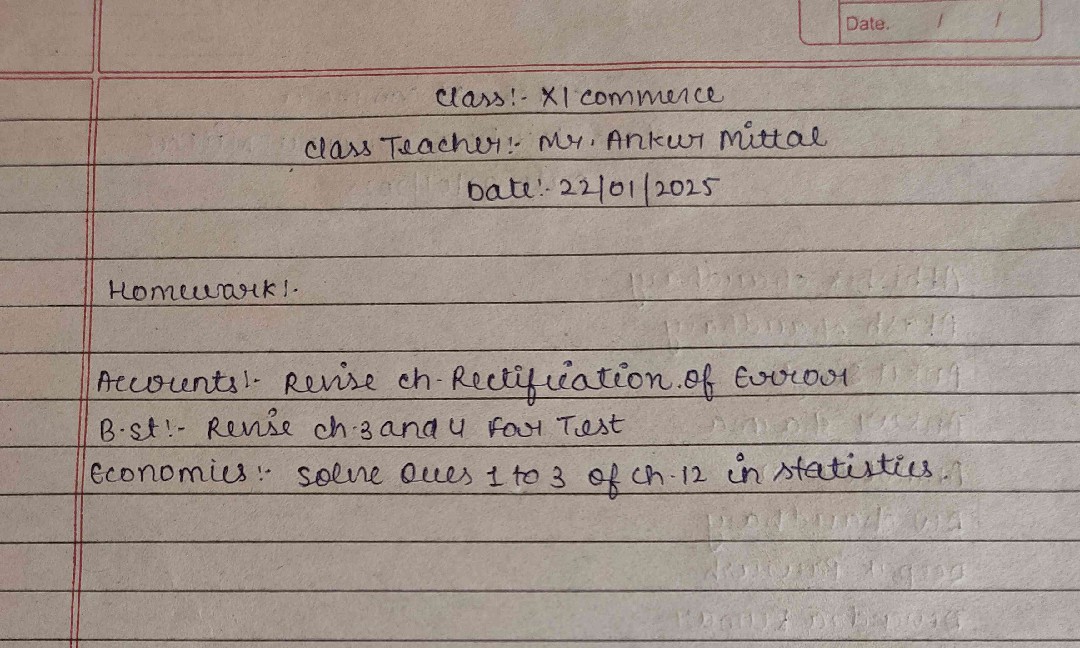 Date. / /
Class:- XI commerce
Class Teacher:- Mr. Ankur Mittal
Date:- 22/01/2025
Homework:-
Accounts:- Revise ch-Rectification of Error
B.st:- Revise ch.3 and 4 for Test
Economics:- Solve Ques 1 to 3 of ch.12 in statistics.